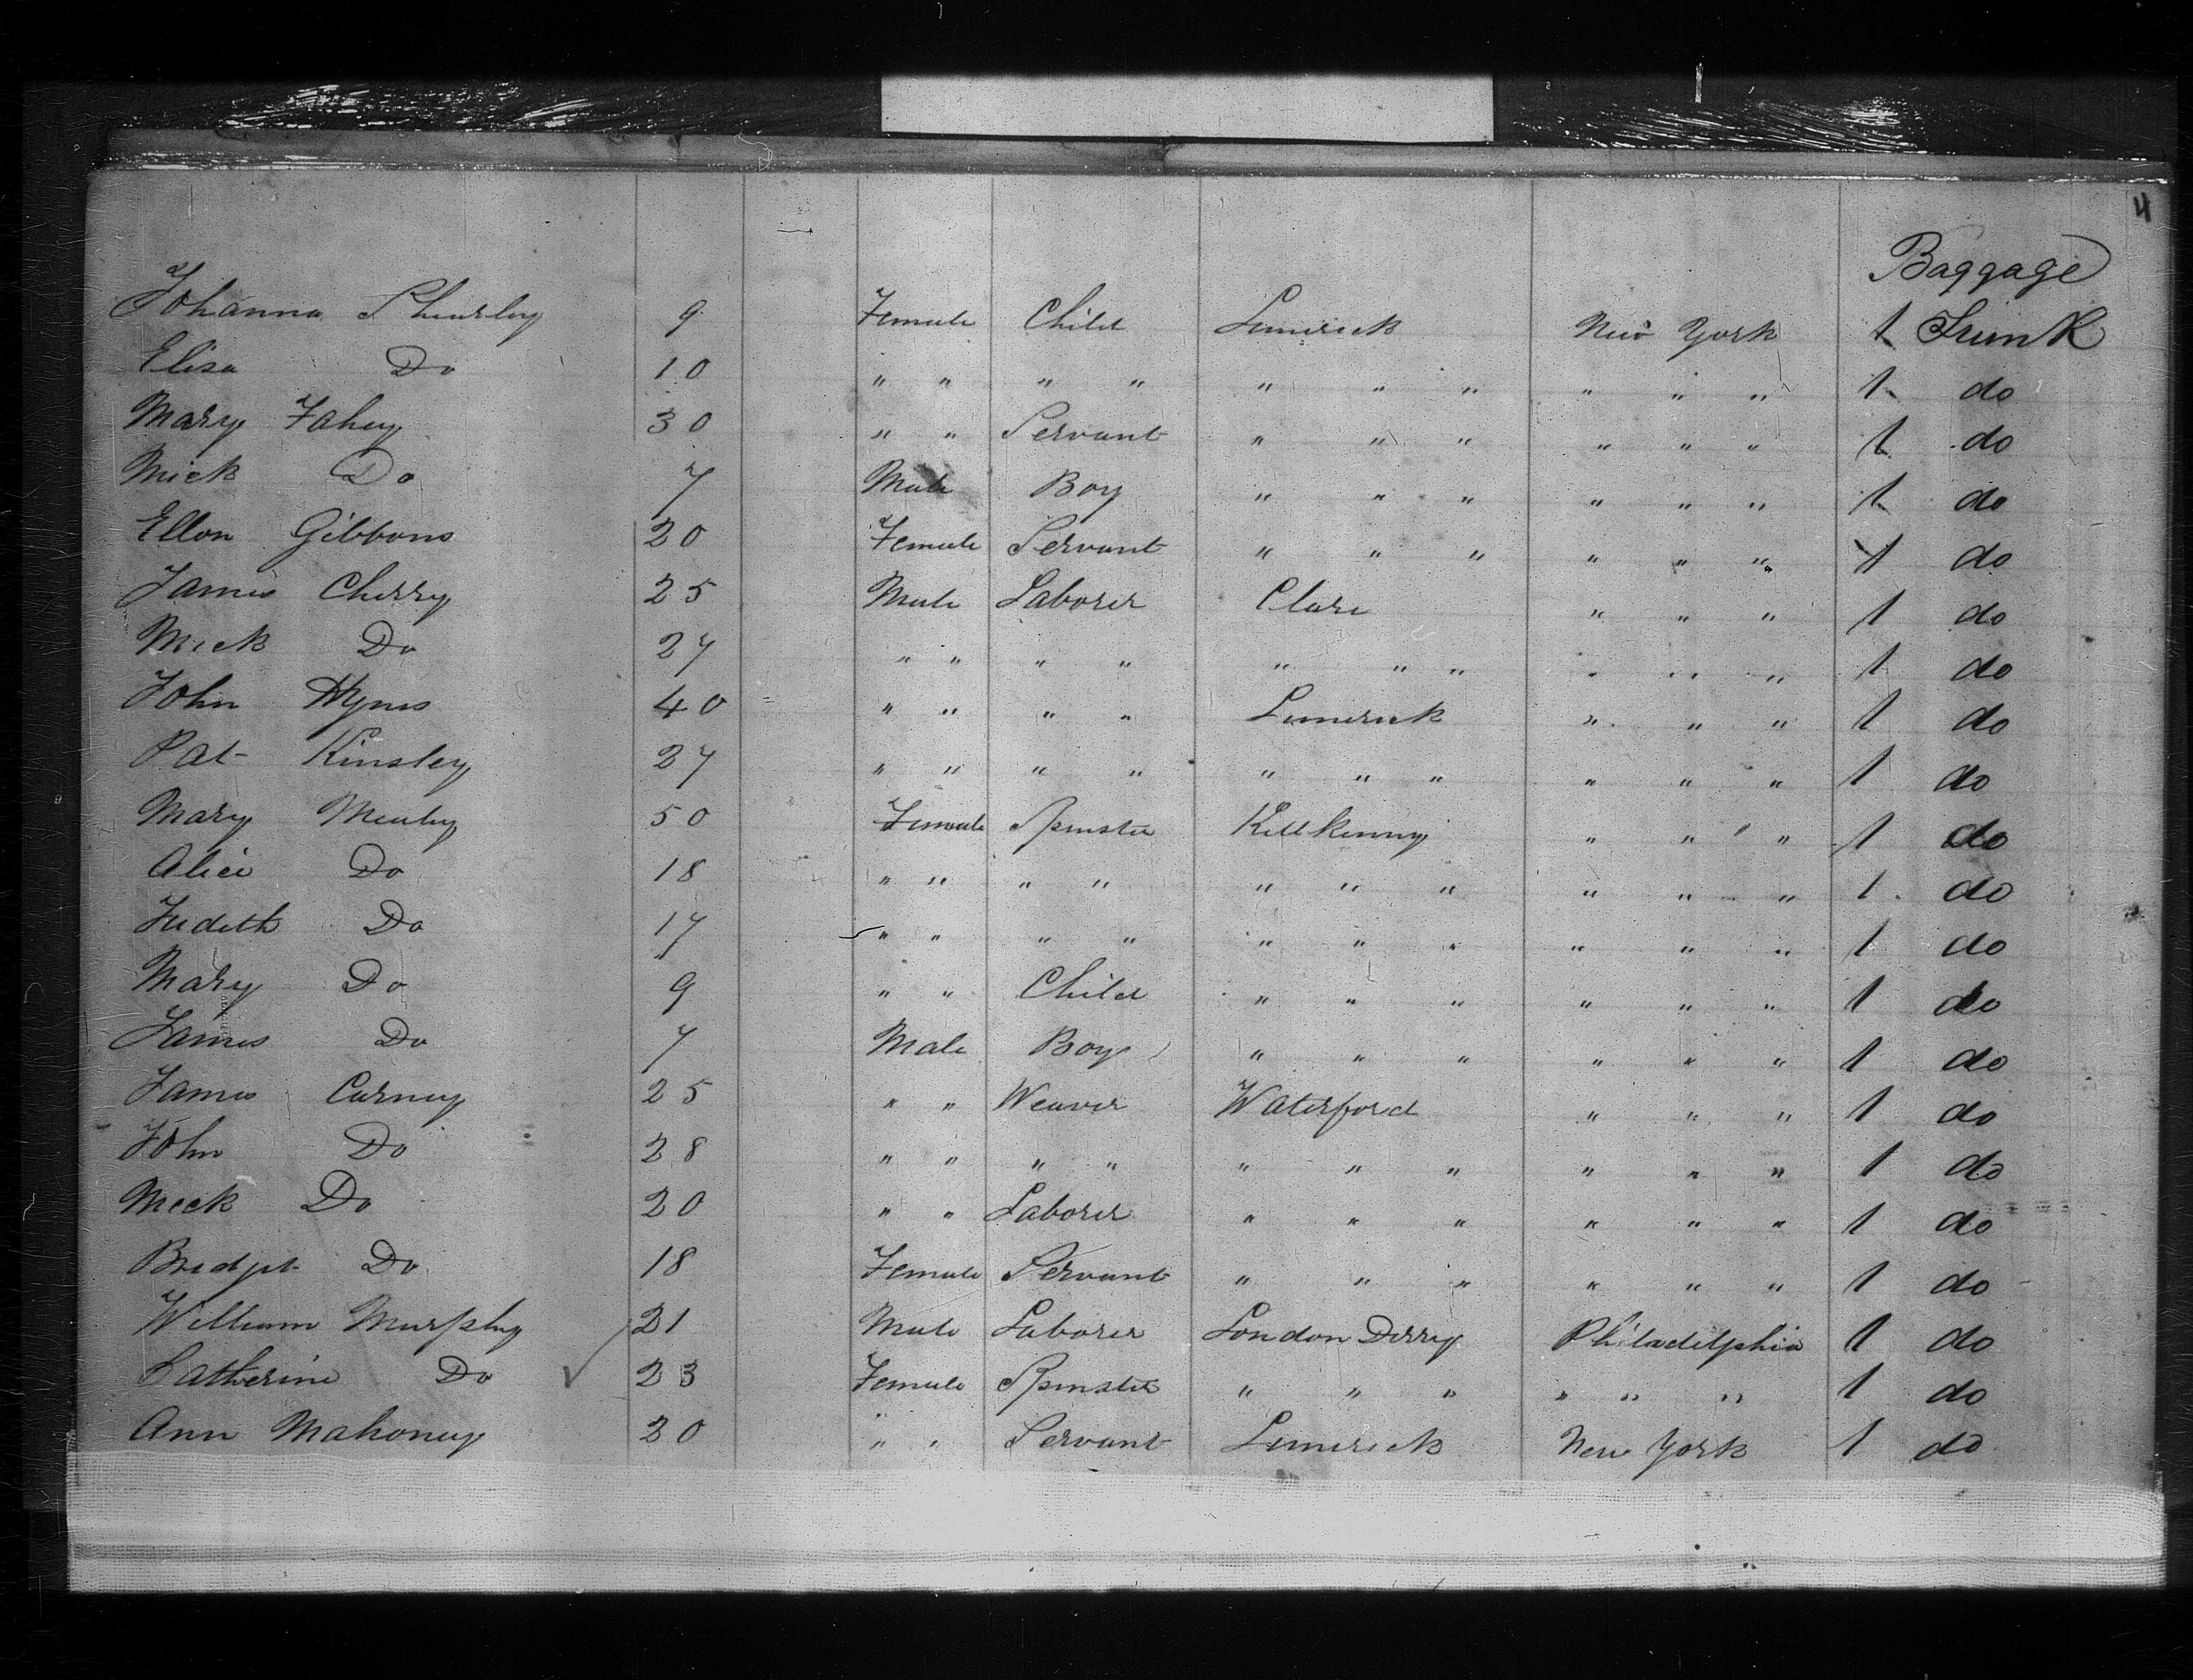 4
Baggage
Johanna 9 Female Child Limerick New York 1 Trunk
Elisa Do 10 " " " " " " " " " " 1 do
Mary Fahey 30 " " Servant " " " " " " 1 do
Mick Do 7 Male Boy " " " " " " 1 do
Ellen Gibbons 20 Female Servant " " " " " " 1 do
James Cherry 25 Male Laborer Clare " " " 1 do
Mick Do 27 " " " " " " " " " " 1 do
John Hynes 40 " " " " Limerick " " " 1 do
Pat Kinsley 27 " " " " " " " " " " 1 do
Mary 50 Female Spinster Killkenny " " " 1 do
Alice Do 18 " " " " " " " " " " 1 do
Judith Do 17 " " " " " " " " " " 1 do
Mary Do 9 " " Child " " " " " " 1 do
James Do 7 Male Boy " " " " " " 1 do
James Carney 25 " " Weaver Waterford " " " 1 do
John Do 28 " " " " " " " " " " 1 do
Mick Do 20 " " Laborer " " " " " " 1 do
Bridget Do 18 Female Servant " " " " " " 1 do
William Murphy 21 Male Laborer London Derry Philadelphia 1 do
Catherine Do ✓ 23 Female Spinster " " " " " " 1 do
Ann Mahoney 20 " " Servant Limerick New York 1 do